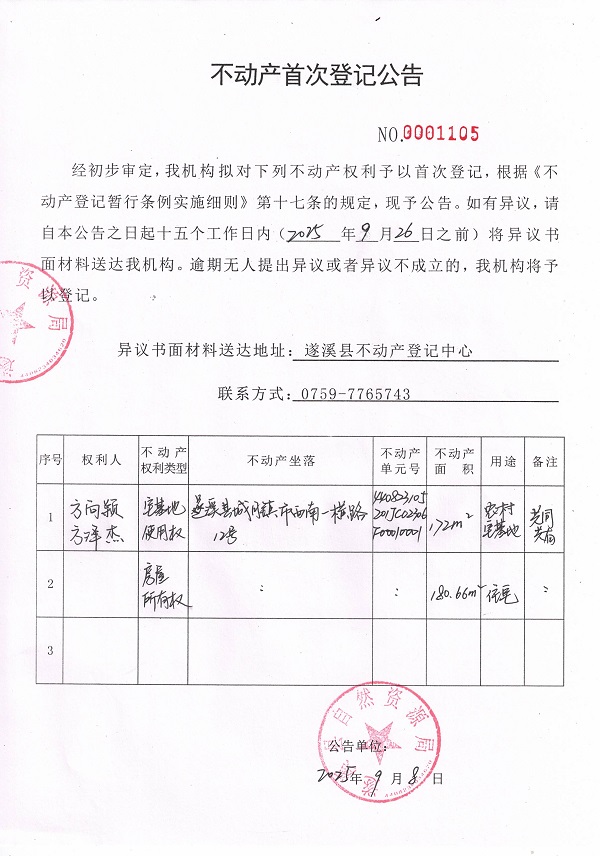 不动产首次登记公告
NO.0001105
经初步审定，我机构拟对下列不动产权利予以首次登记，根据《不
动产登记暂行条例实施细则》第十七条的规定，现予公告。如有异议，请
自本公告之日起十五个工作日内（2025年9月26日之前）将异议书
面材料送达我机构。逾期无人提出异议或者异议不成立的，我机构将予
以登记。
异议书面材料送达地址：遂溪县不动产登记中心
联系方式：0759-7765743
序号 权利人 不动产权利类型 不动产坐落 不动产单元号 不动产面积 用途 备注
1 方向颖 方泽杰 宅基地使用权 遂溪县城月镇市西南一横路12号 440823105 201JC02306 F00010001 172m² 农村宅基地 共同共有
2 房屋所有权 : : 180.66m² 住宅 :
3
自然资源局
公告单位：
2025年9月8日